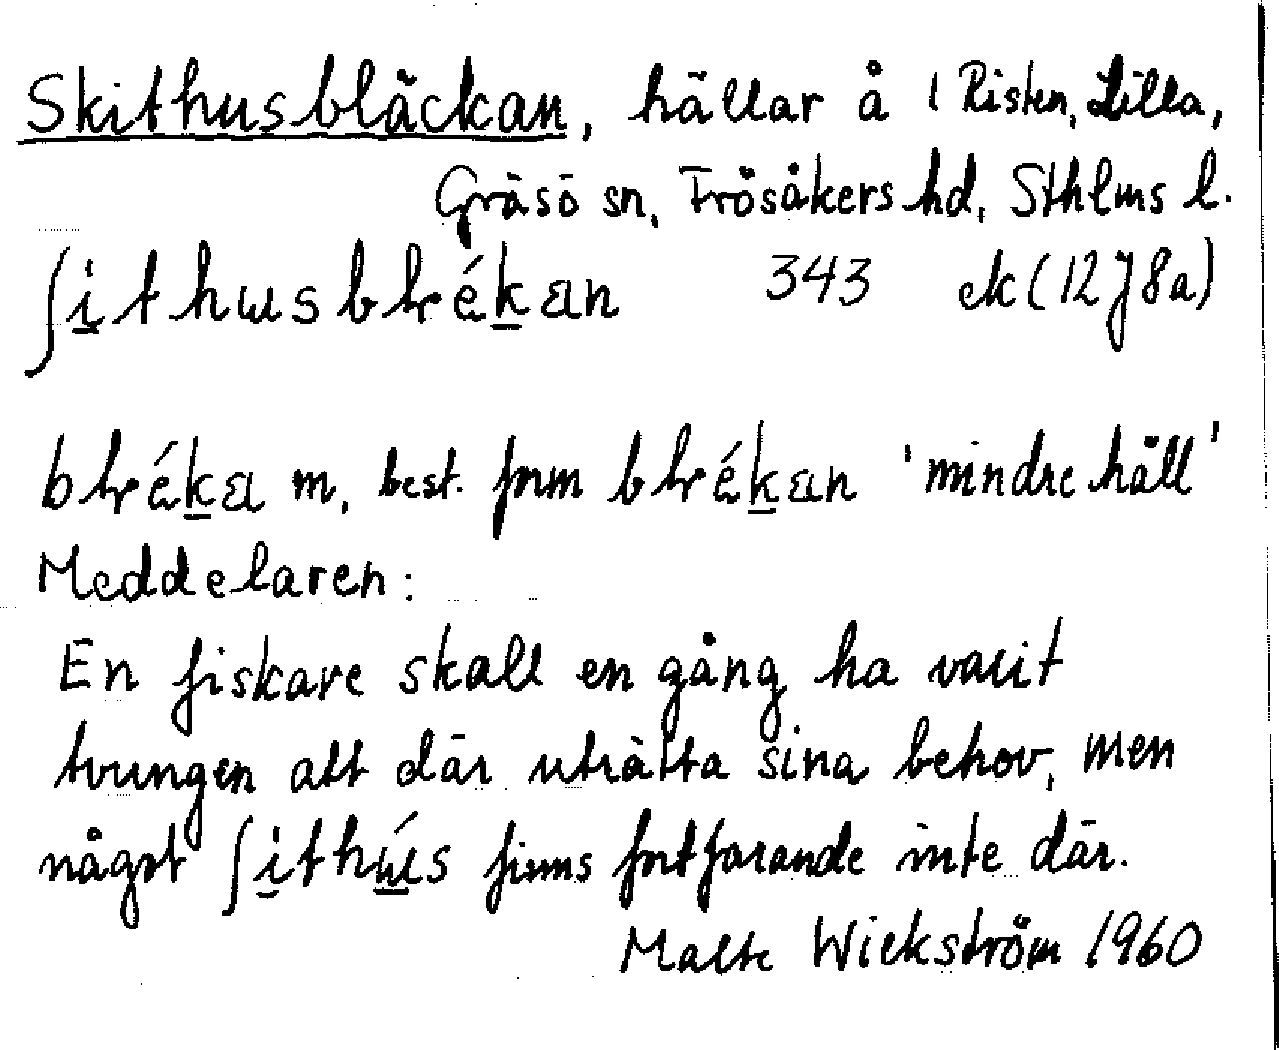 Skithusbläckan, hällar å 1 Risten, Lilla,
Gräsö sn, Frösåkers hd, Sthlms l.
ʃi̱thusblré̱kan 343 ek (12 J 8a)
blréḵa m, best. form blréḵan 'mindre häll'
Meddelaren:
En fiskare skall en gång ha varit
tvungen att där uträtta sina behov, men
något ʃi̱thú̱s finns fortfarande inte där.
Malte Wickström 1960